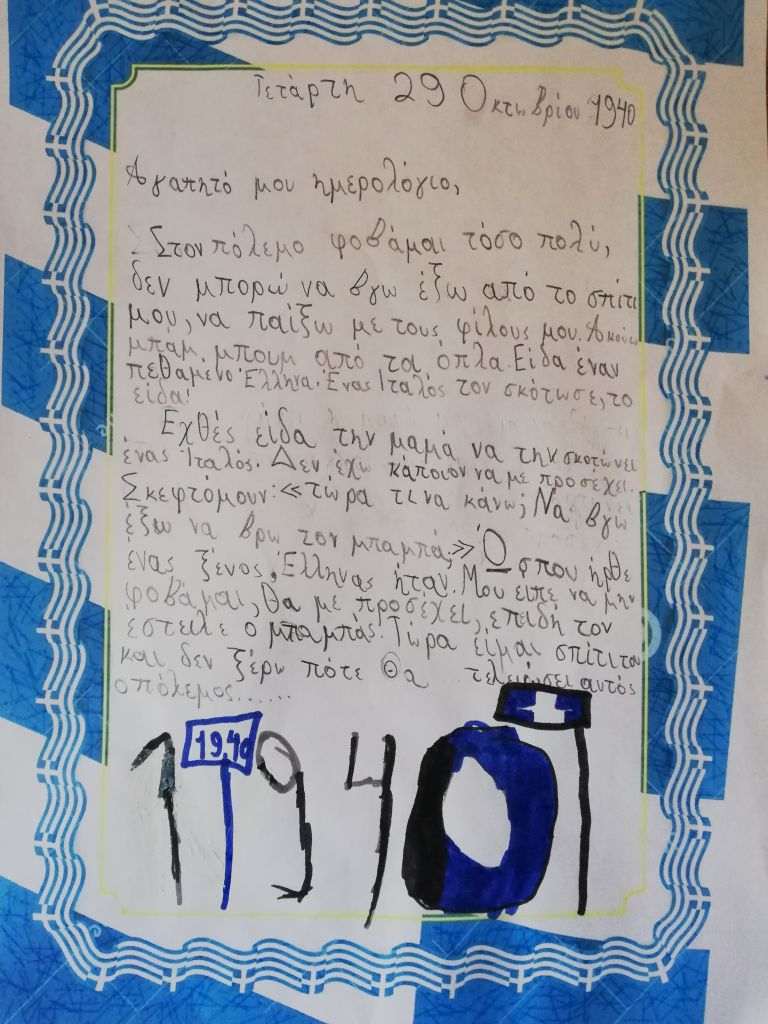 Τετάρτη 29 Οκτωβρίου 1940
Αγαπητό μου ημερολόγιο,
Στον πόλεμο φοβάμαι τόσο πολύ,
δεν μπορώ να βγω έξω από το σπίτι
μου, να παίξω με τους φίλους μου. Ακούω
μπάμ, μπουμ από τα όπλα. Είδα έναν
πεθαμένο Έλληνα. Ένας Ιταλός τον σκότωσε, το
είδα!
Εχθές είδα την μαμά να την σκοτώνει
ένας Ιταλός. Δεν έχω κάποιον να με προσέχει.
Σκεφτόμουν: «τώρα τι να κάνω; Να βγω
έξω να βρω τον μπαμπά;» Ώσπου ήρθε
ένας ξένος, Έλληνας ήταν. Μου είπε να μην
φοβάμαι, θα με προσέχει, επειδή τον
έστειλε ο μπαμπάς. Τώρα είμαι σπίτι του
και δεν ξέρω πότε θα τελειώσει αυτός
ο πόλεμος......
1940
1940